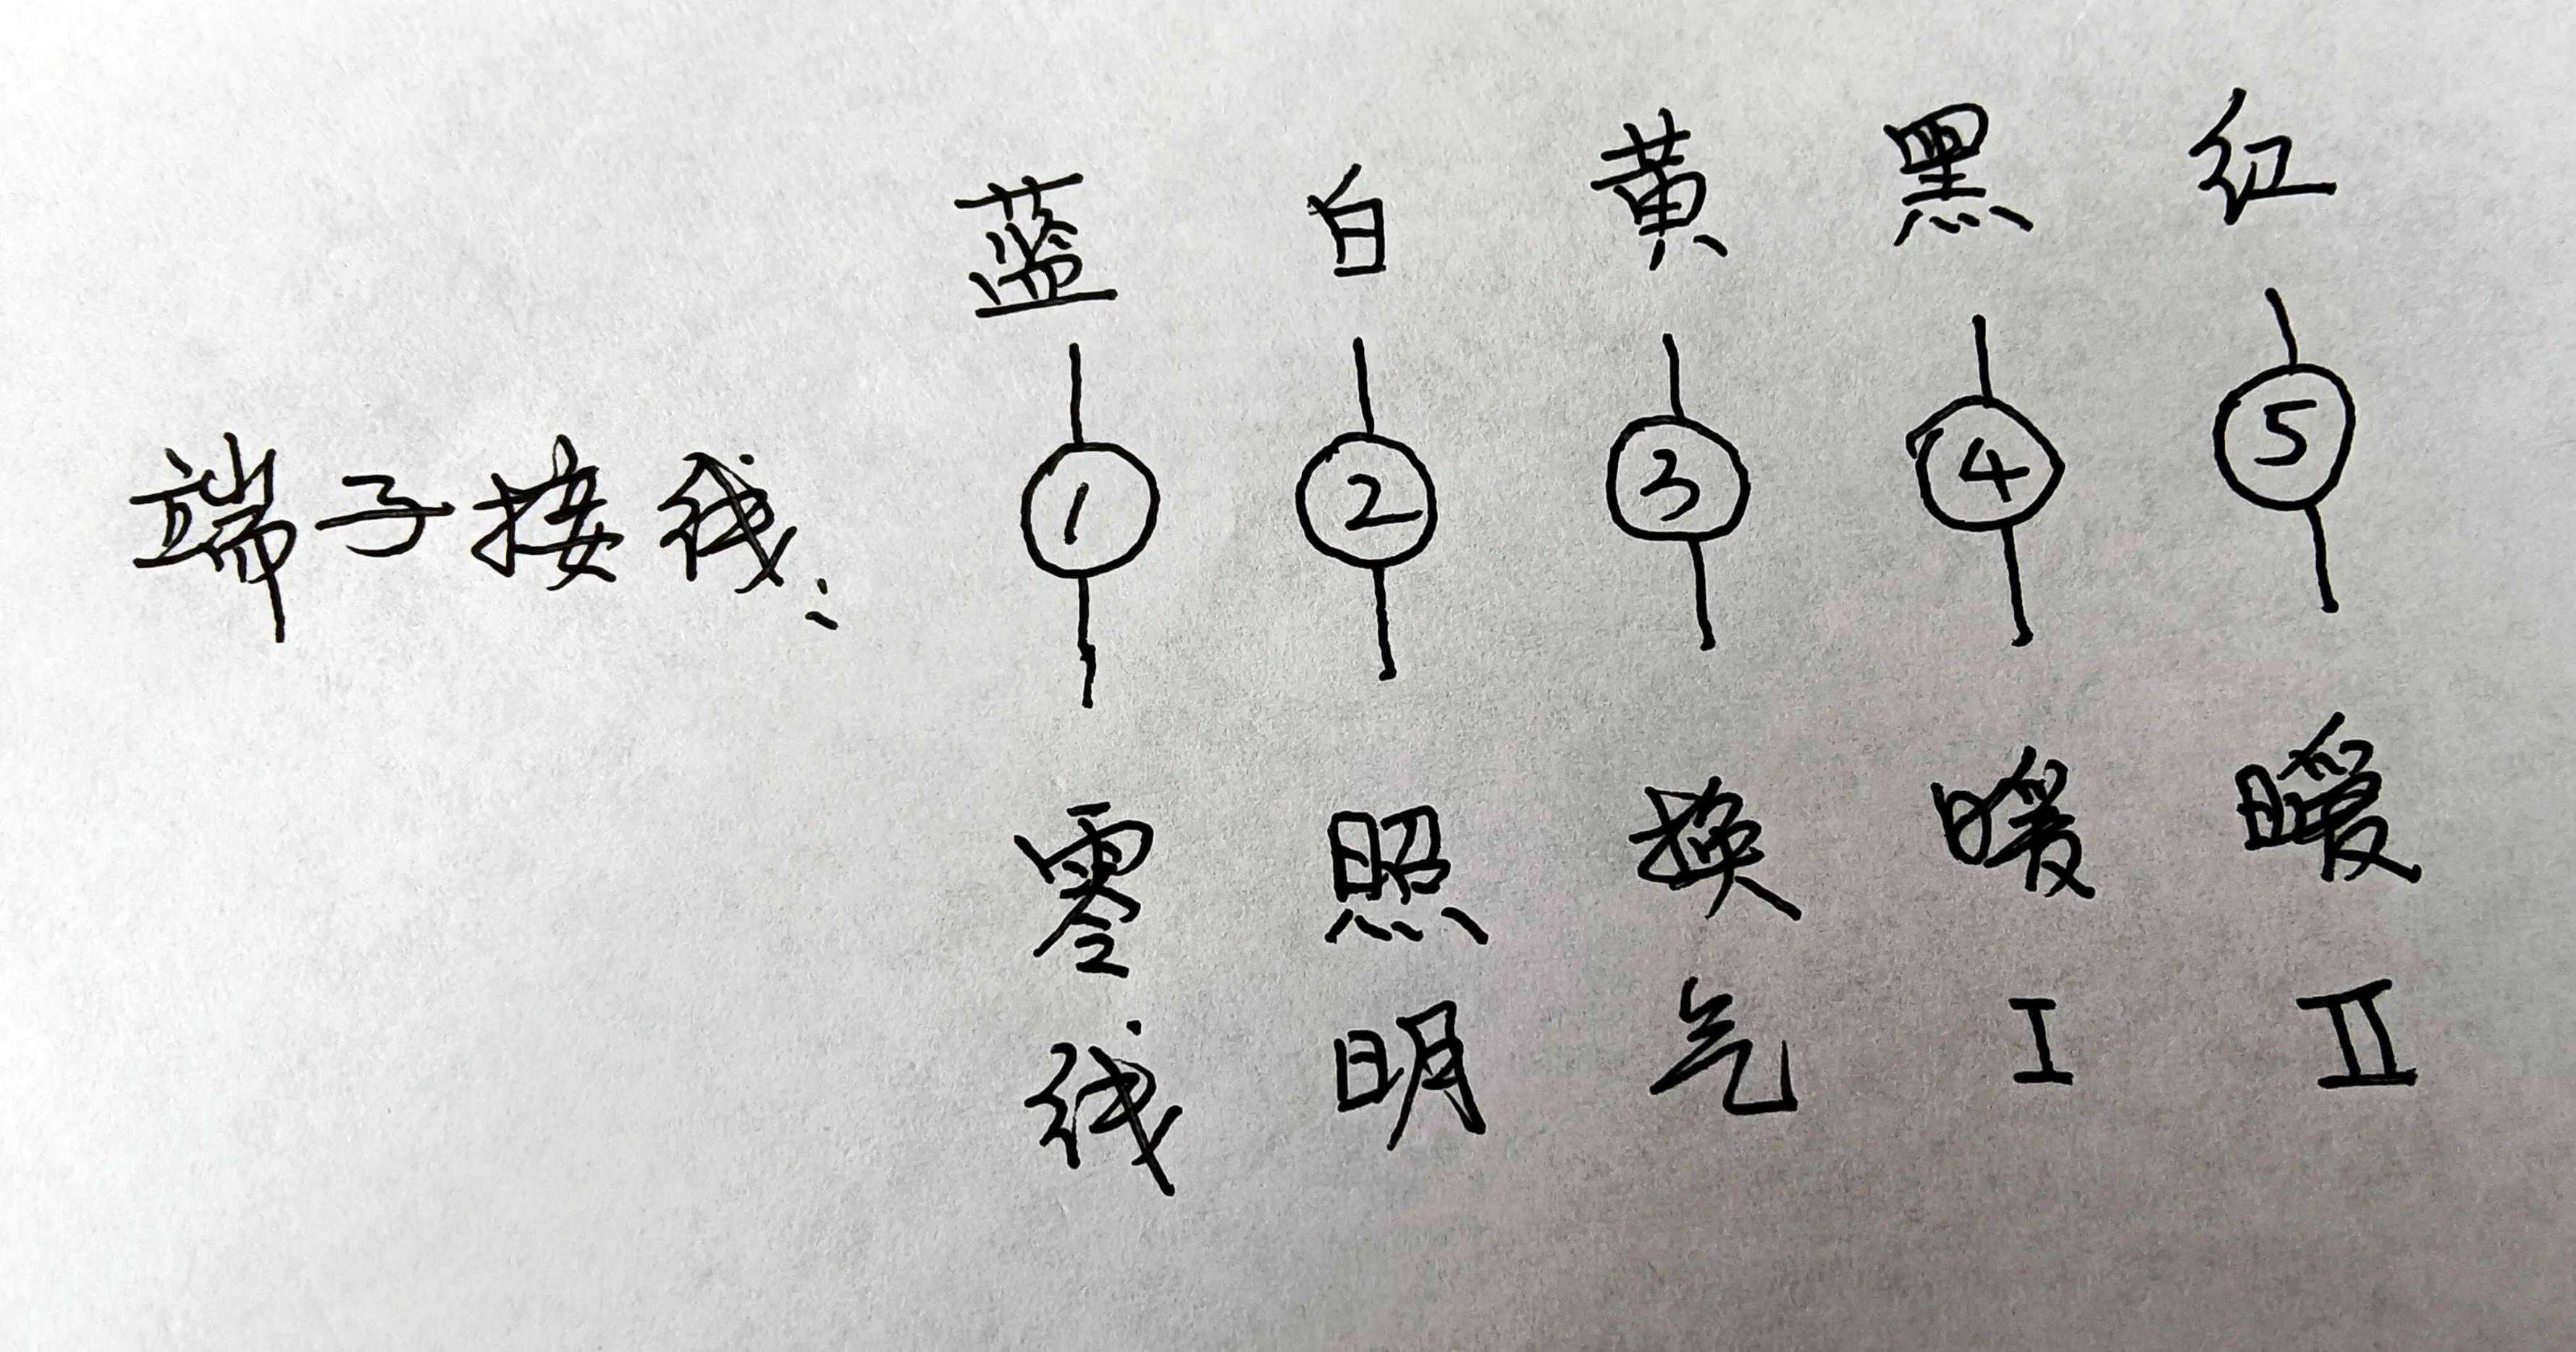 蓝 白 黄 黑 红
端子接线: ① ② ③ ④ ⑤
零线 照明 换气 暖I 暖II